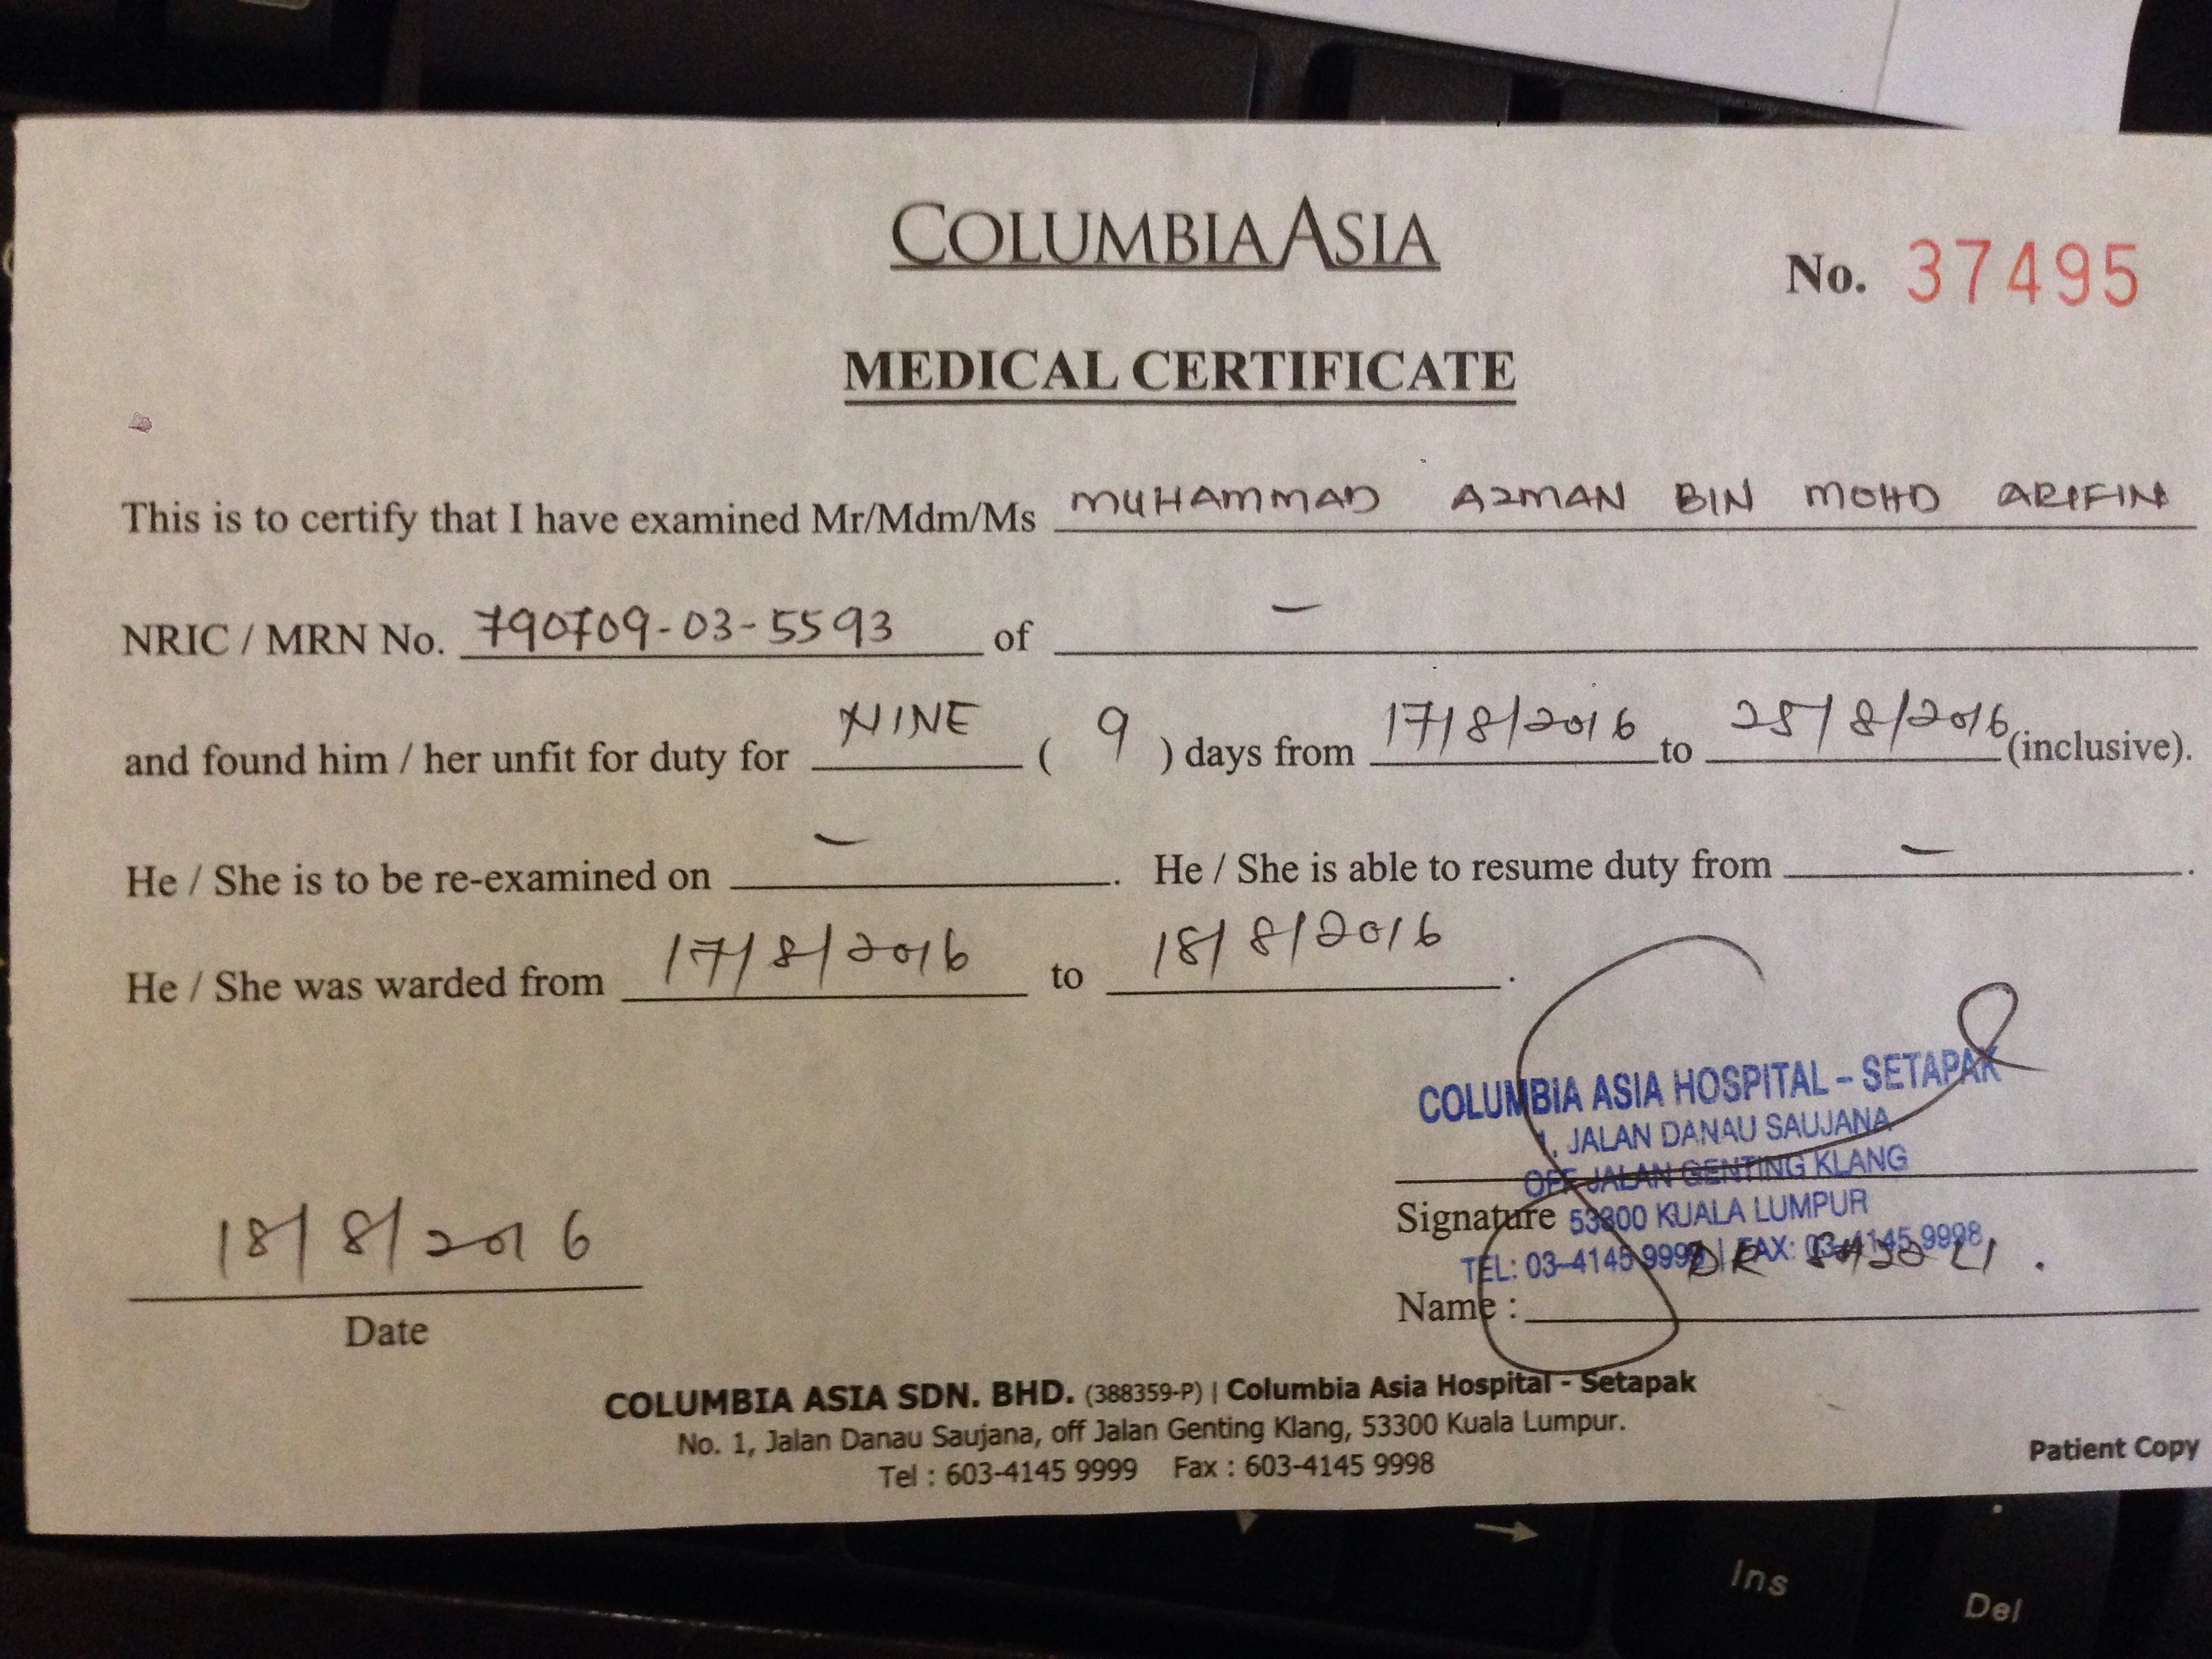 COLUMBIA ASIA
No. 37495
MEDICAL CERTIFICATE
This is to certify that I have examined Mr/Mdm/Ms MUHAMMAD AZMAN BIN MOHD ARIFIN
NRIC / MRN No. 790709-03-5593 of –
and found him / her unfit for duty for NINE ( 9 ) days from 17/8/2016 to 25/8/2016 (inclusive).
He / She is to be re-examined on – . He / She is able to resume duty from – .
He / She was warded from 17/8/2016 to 18/8/2016 .
COLUMBIA ASIA HOSPITAL – SETAPAK
1, JALAN DANAU SAUJANA
OFF JALAN GENTING KLANG
Signature 53300 KUALA LUMPUR
TEL: 03-4145 9999 | FAX: 03-4145 9998
DR
Name :
18/8/2016
Date
COLUMBIA ASIA SDN. BHD. (388359-P) | Columbia Asia Hospital - Setapak
No. 1, Jalan Danau Saujana, off Jalan Genting Klang, 53300 Kuala Lumpur.
Tel : 603-4145 9999 Fax : 603-4145 9998
Patient Copy
Ins
Del